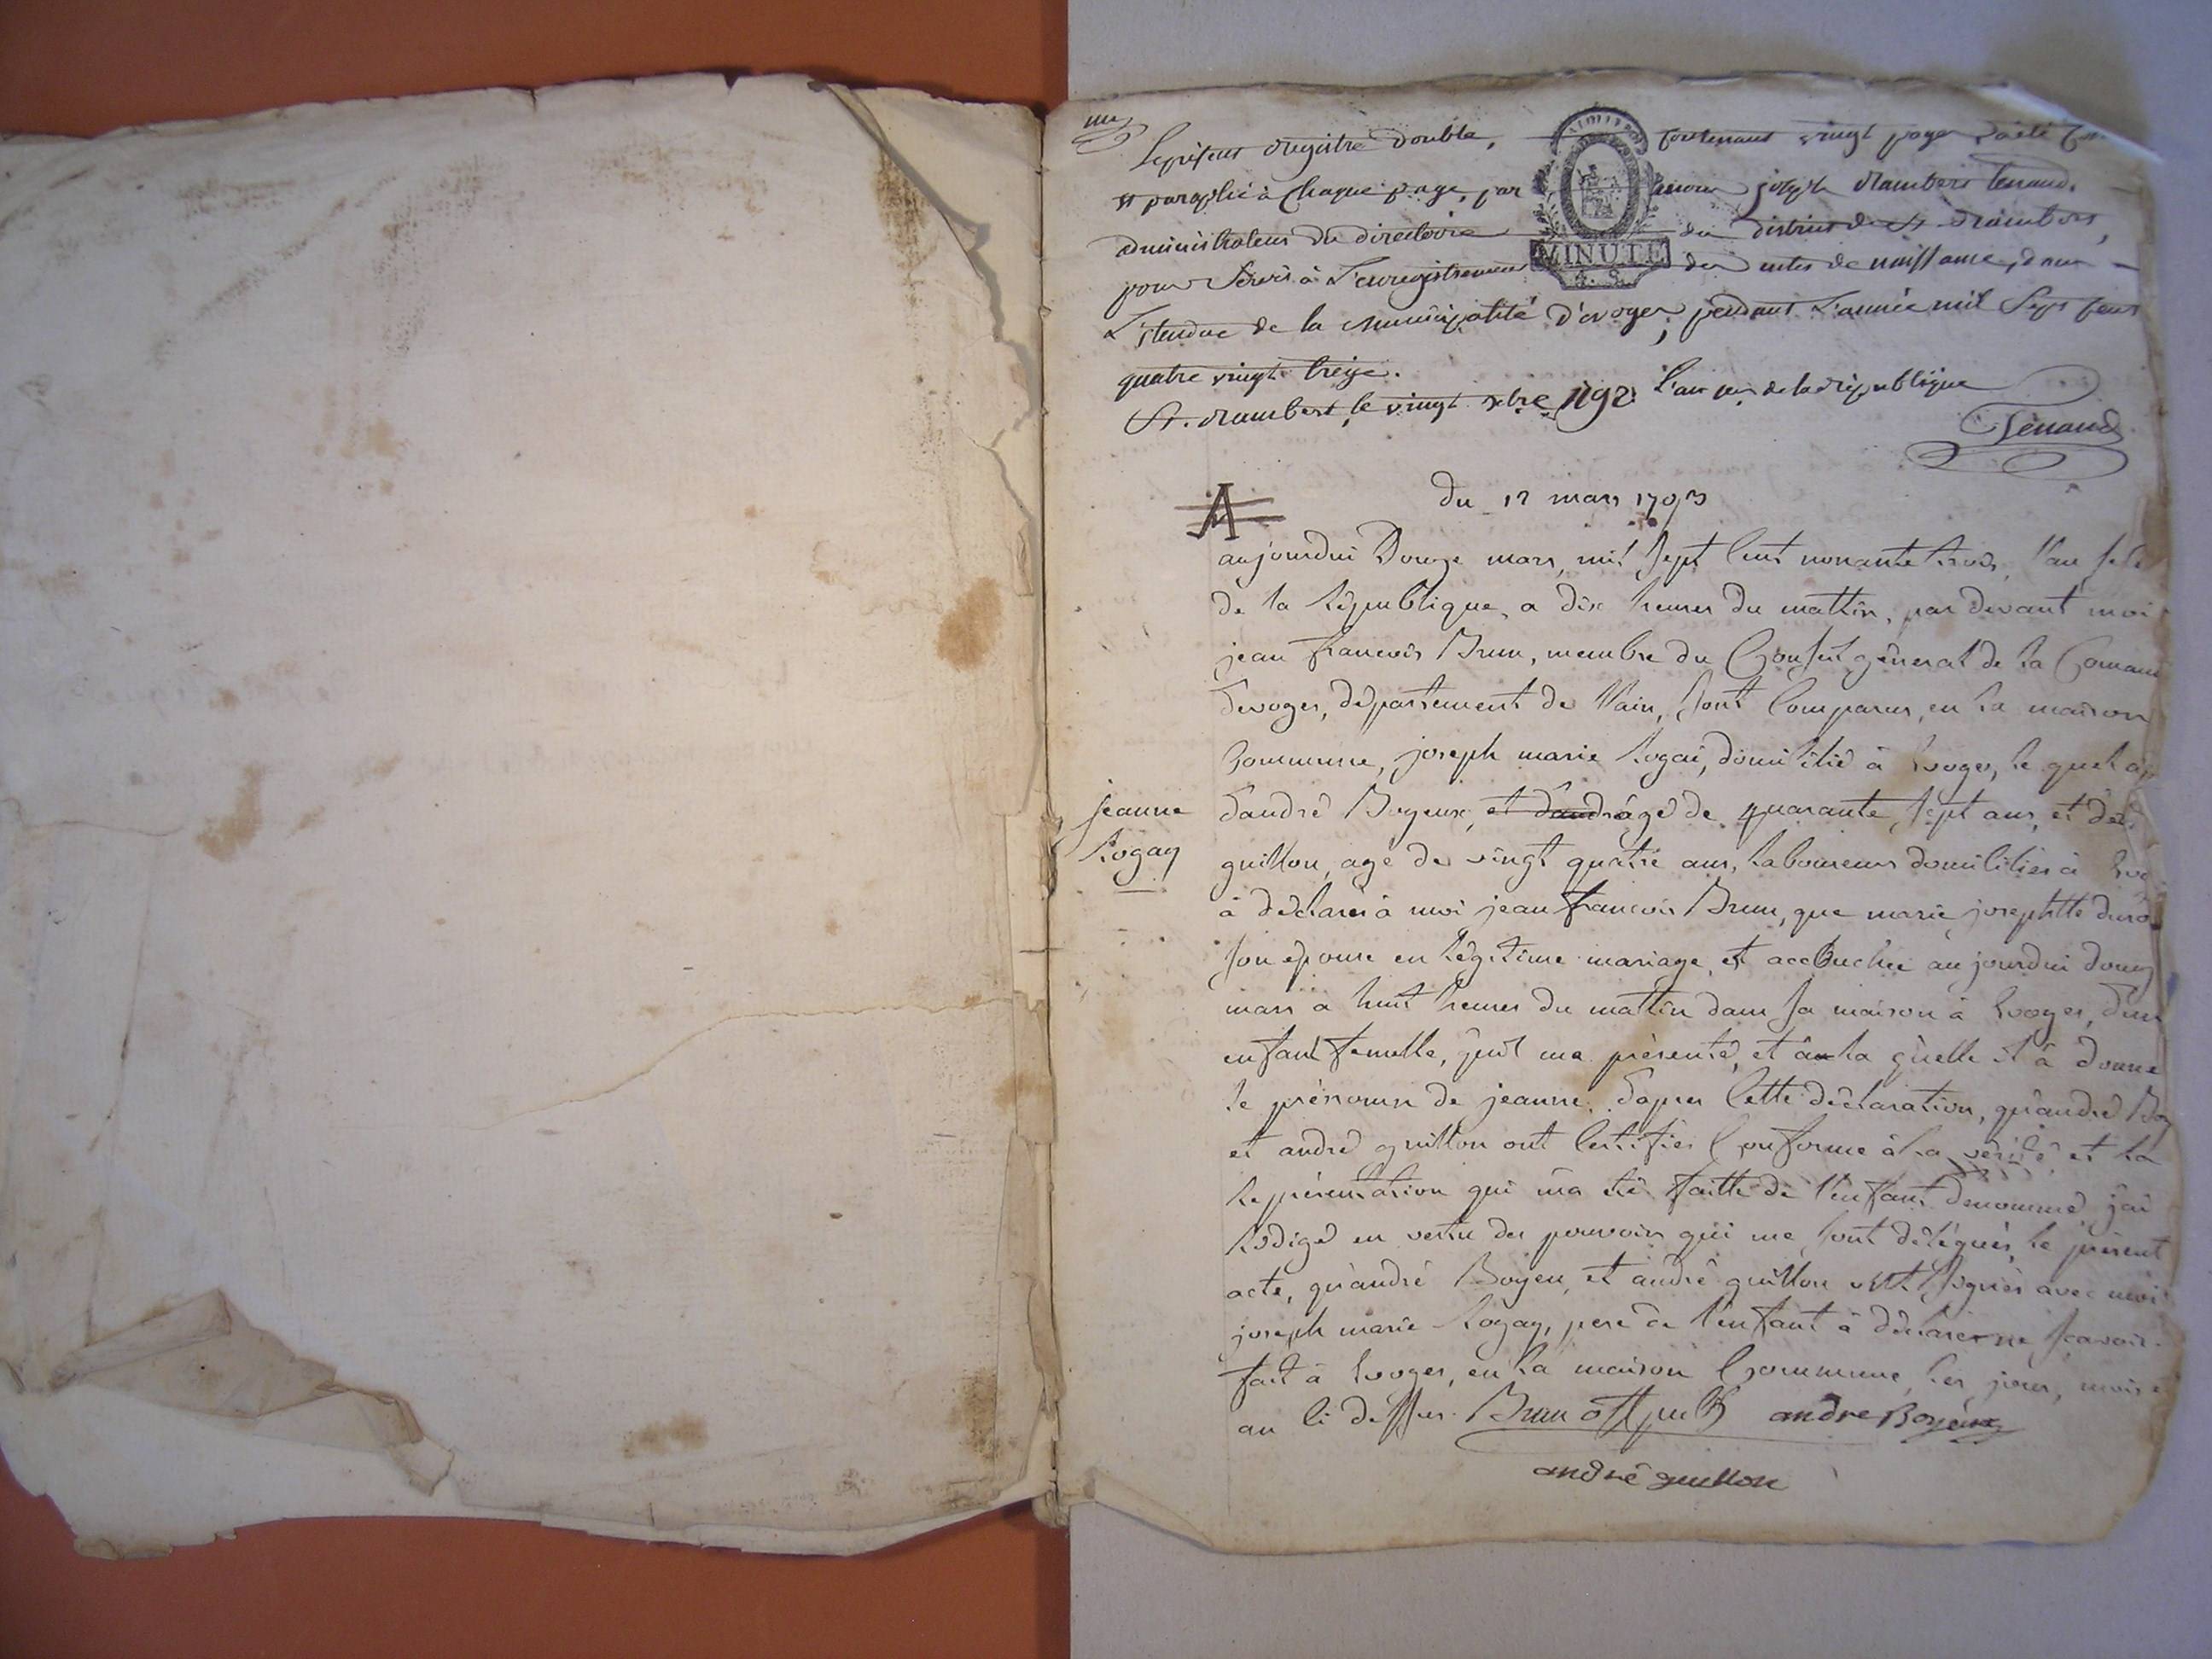 un
Le présent Registre double, contenant vingt pages a été
et paraphé à chaque page, par nous joseph Rambert tenand,
administrateur du directoire du district de St Rambert,
pour servir à L'enregistrement des actes de naissance, dans
L'étendue de la municipalité d'evoges, pendant L'année mil Sept cent
quatre vingt treize.
St. Rambert, le vingt xbre 1792 L'an 1er de la République
Tenand
MINUTE
4. S.
du 12 mars 1793
A
aujourdui Douze mars, mil sept cent nonante trois, l'an
de la République, a dix heures du mattin, par devant moi
jean francois Brun, membre du Conseil géneral de la
devoges, département de l'ain, sont comparus, en la maison
Commune, joseph marie Rogai, domicilié à Evoges, le quel
Jeanne
Rogay
d'andré Boyeux, et dandr âgé de quarante, sept ans, et
guillon, agé de vingt quatre ans, laboureurs domiciliés à
à déclaré à moi jean francois Brun, que marie josephtte
son epouse en légitime mariage, et accouchée aujourdui
mars a huit heures du mattin dans sa maison à Evoges,
enfant femelle, quil ma présenté, et a la quelle il à donné
le prénomn de jeanne. dapres cette déclaration, qu'andré
et andré guillon ont certifiés Conforme à la vérité et la
représentation qui ma été faitte de l'enfant denommé, j'ai
Rédigé en vertu des pouvoirs qui me sont délégués, le présent
acte, qu'andré Boyeu, et andré guillon ont signés avec moi
joseph marie Rogay, pere de l'enfant à déclaré ne scavoir.
fait à Evoges, en la maison Commune, les jour, mois
an ci dessus. Brun off pub andre Boyeux
andré guillon